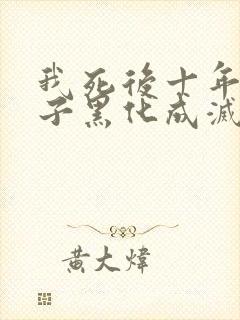 我死後十年
子黑化成滅
黃大煒